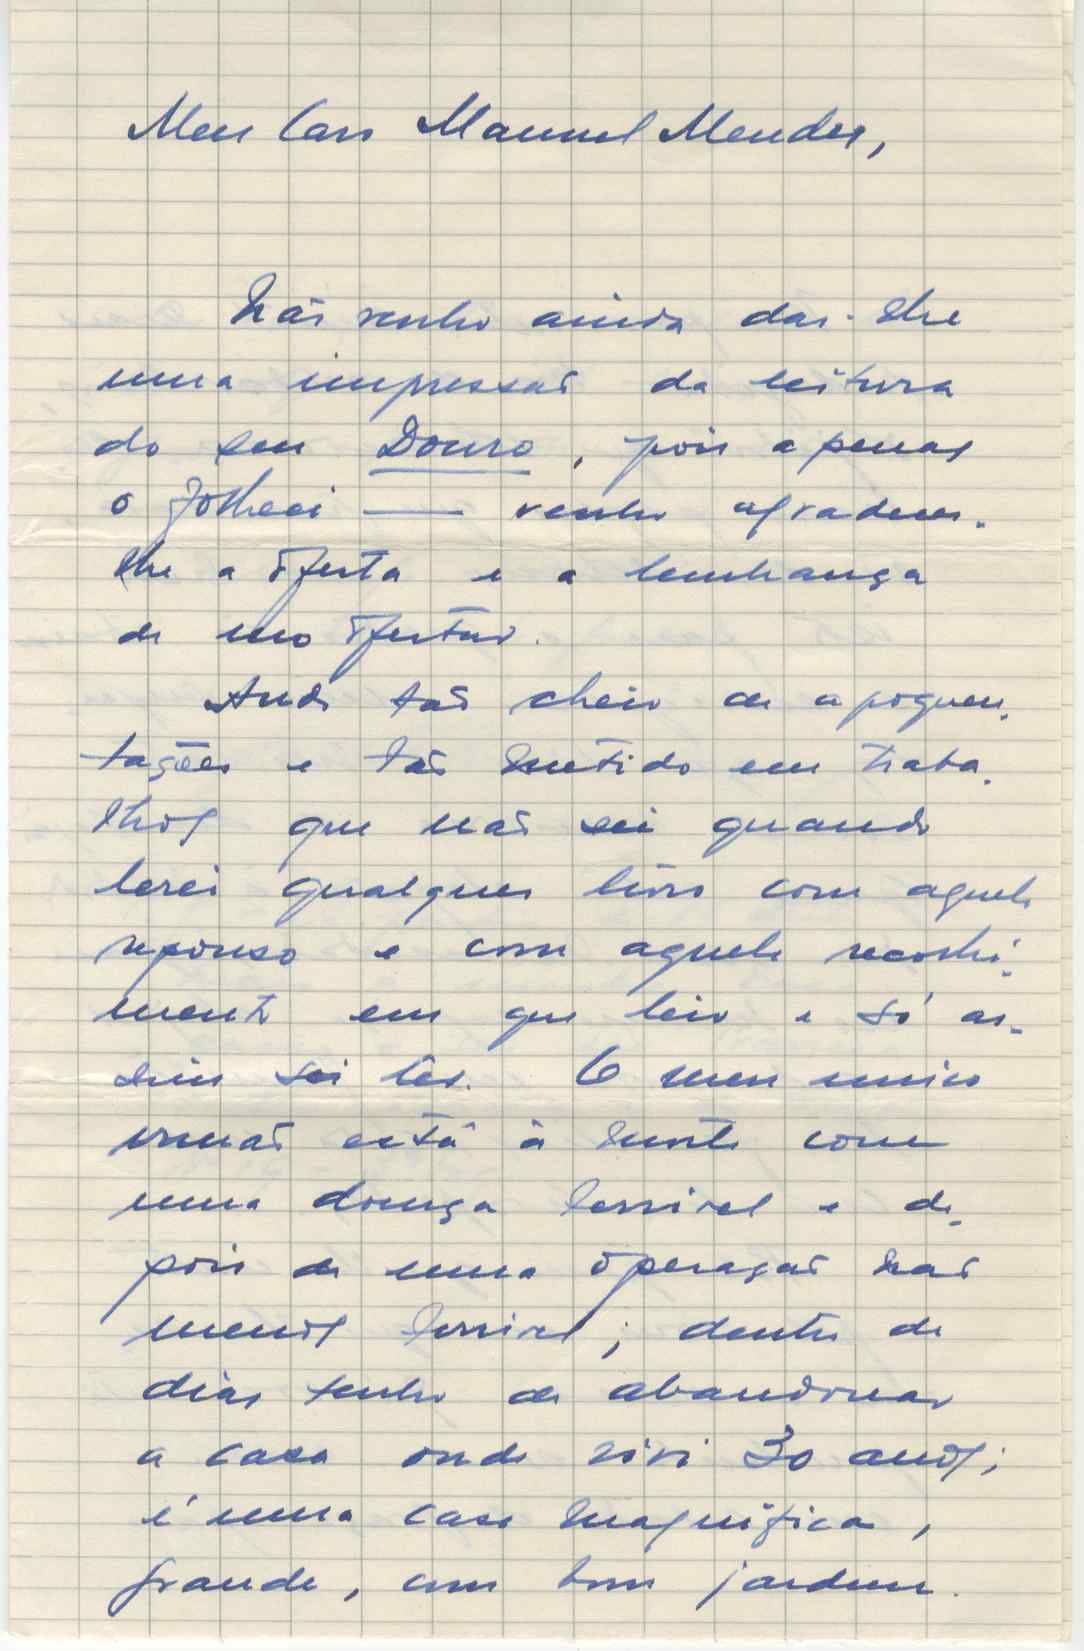 Meu Caro Manuel Mendes,
Não venho ainda dar-lhe
uma impressão da leitura
do seu Douro, pois apenas
o folheei — venho agradecer-
lhe a oferta e a lembrança
de mo ofertar.
Ando tão cheio de apoquen-
tações e tão metido em traba-
lhos que não sei quando
lerei qualquer livro com aquele
repouso e com aquele recolhi-
mento em que leio e só as-
sim sei ler. O meu unico
irmão está à morte com
uma doença terrivel e de-
pois de uma operação não
menos terrivel; dentro de
dias tenho de abandonar
a casa onde vivi 30 anos;
é uma casa magnífica,
grande, com bom jardim.